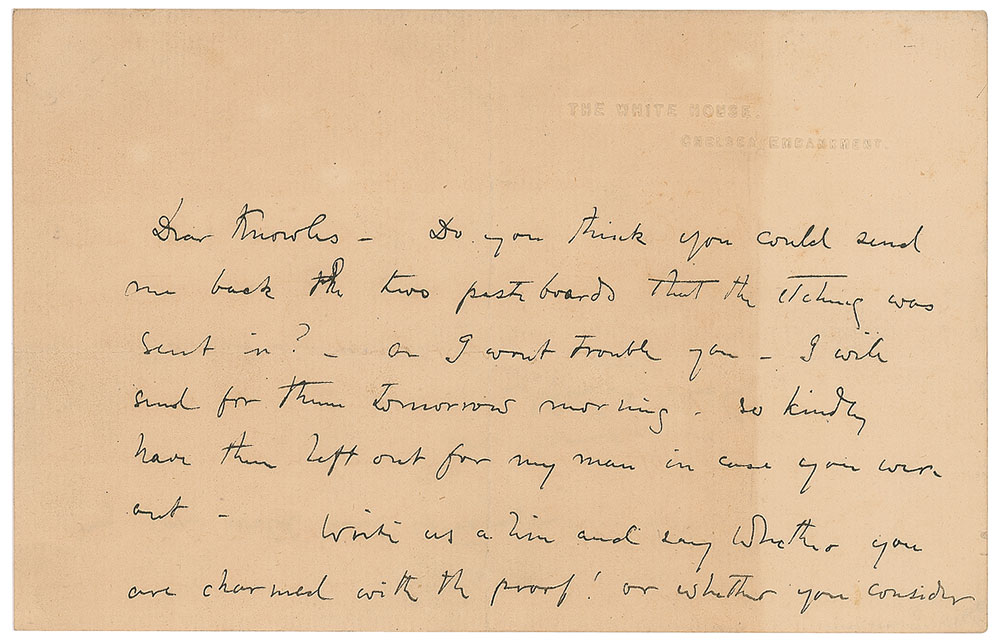 THE WHITE HOUSE.
CHELSEA EMBANKMENT.
Dear Knowles – Do you think you could send
me back the two pasteboards that the etching was
sent in? – or I wont trouble you – I will
send for them tomorrow morning – so kindly
have them left out for my man in case you were
out –
Write us a line and say whether you
are charmed with the proof! or whether you consider